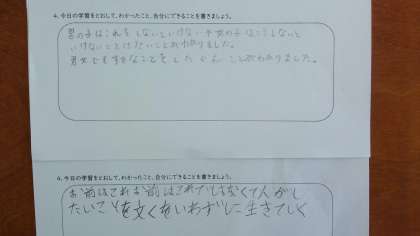 4. 今日の学習をとおして、わかったこと、自分にできることを書きましょう。
男の子はこれをしないといけない 女の子はこうしないと
いけないことはないことがわかりました。
男女でもすきなことをしたらいいことがわかりました。
4. 今日の学習をとおして、わかったこと、自分にできることを書きましょう。
お前はこれお前はこれでしなくて人がし
たいことを文くをいわずに生きていく